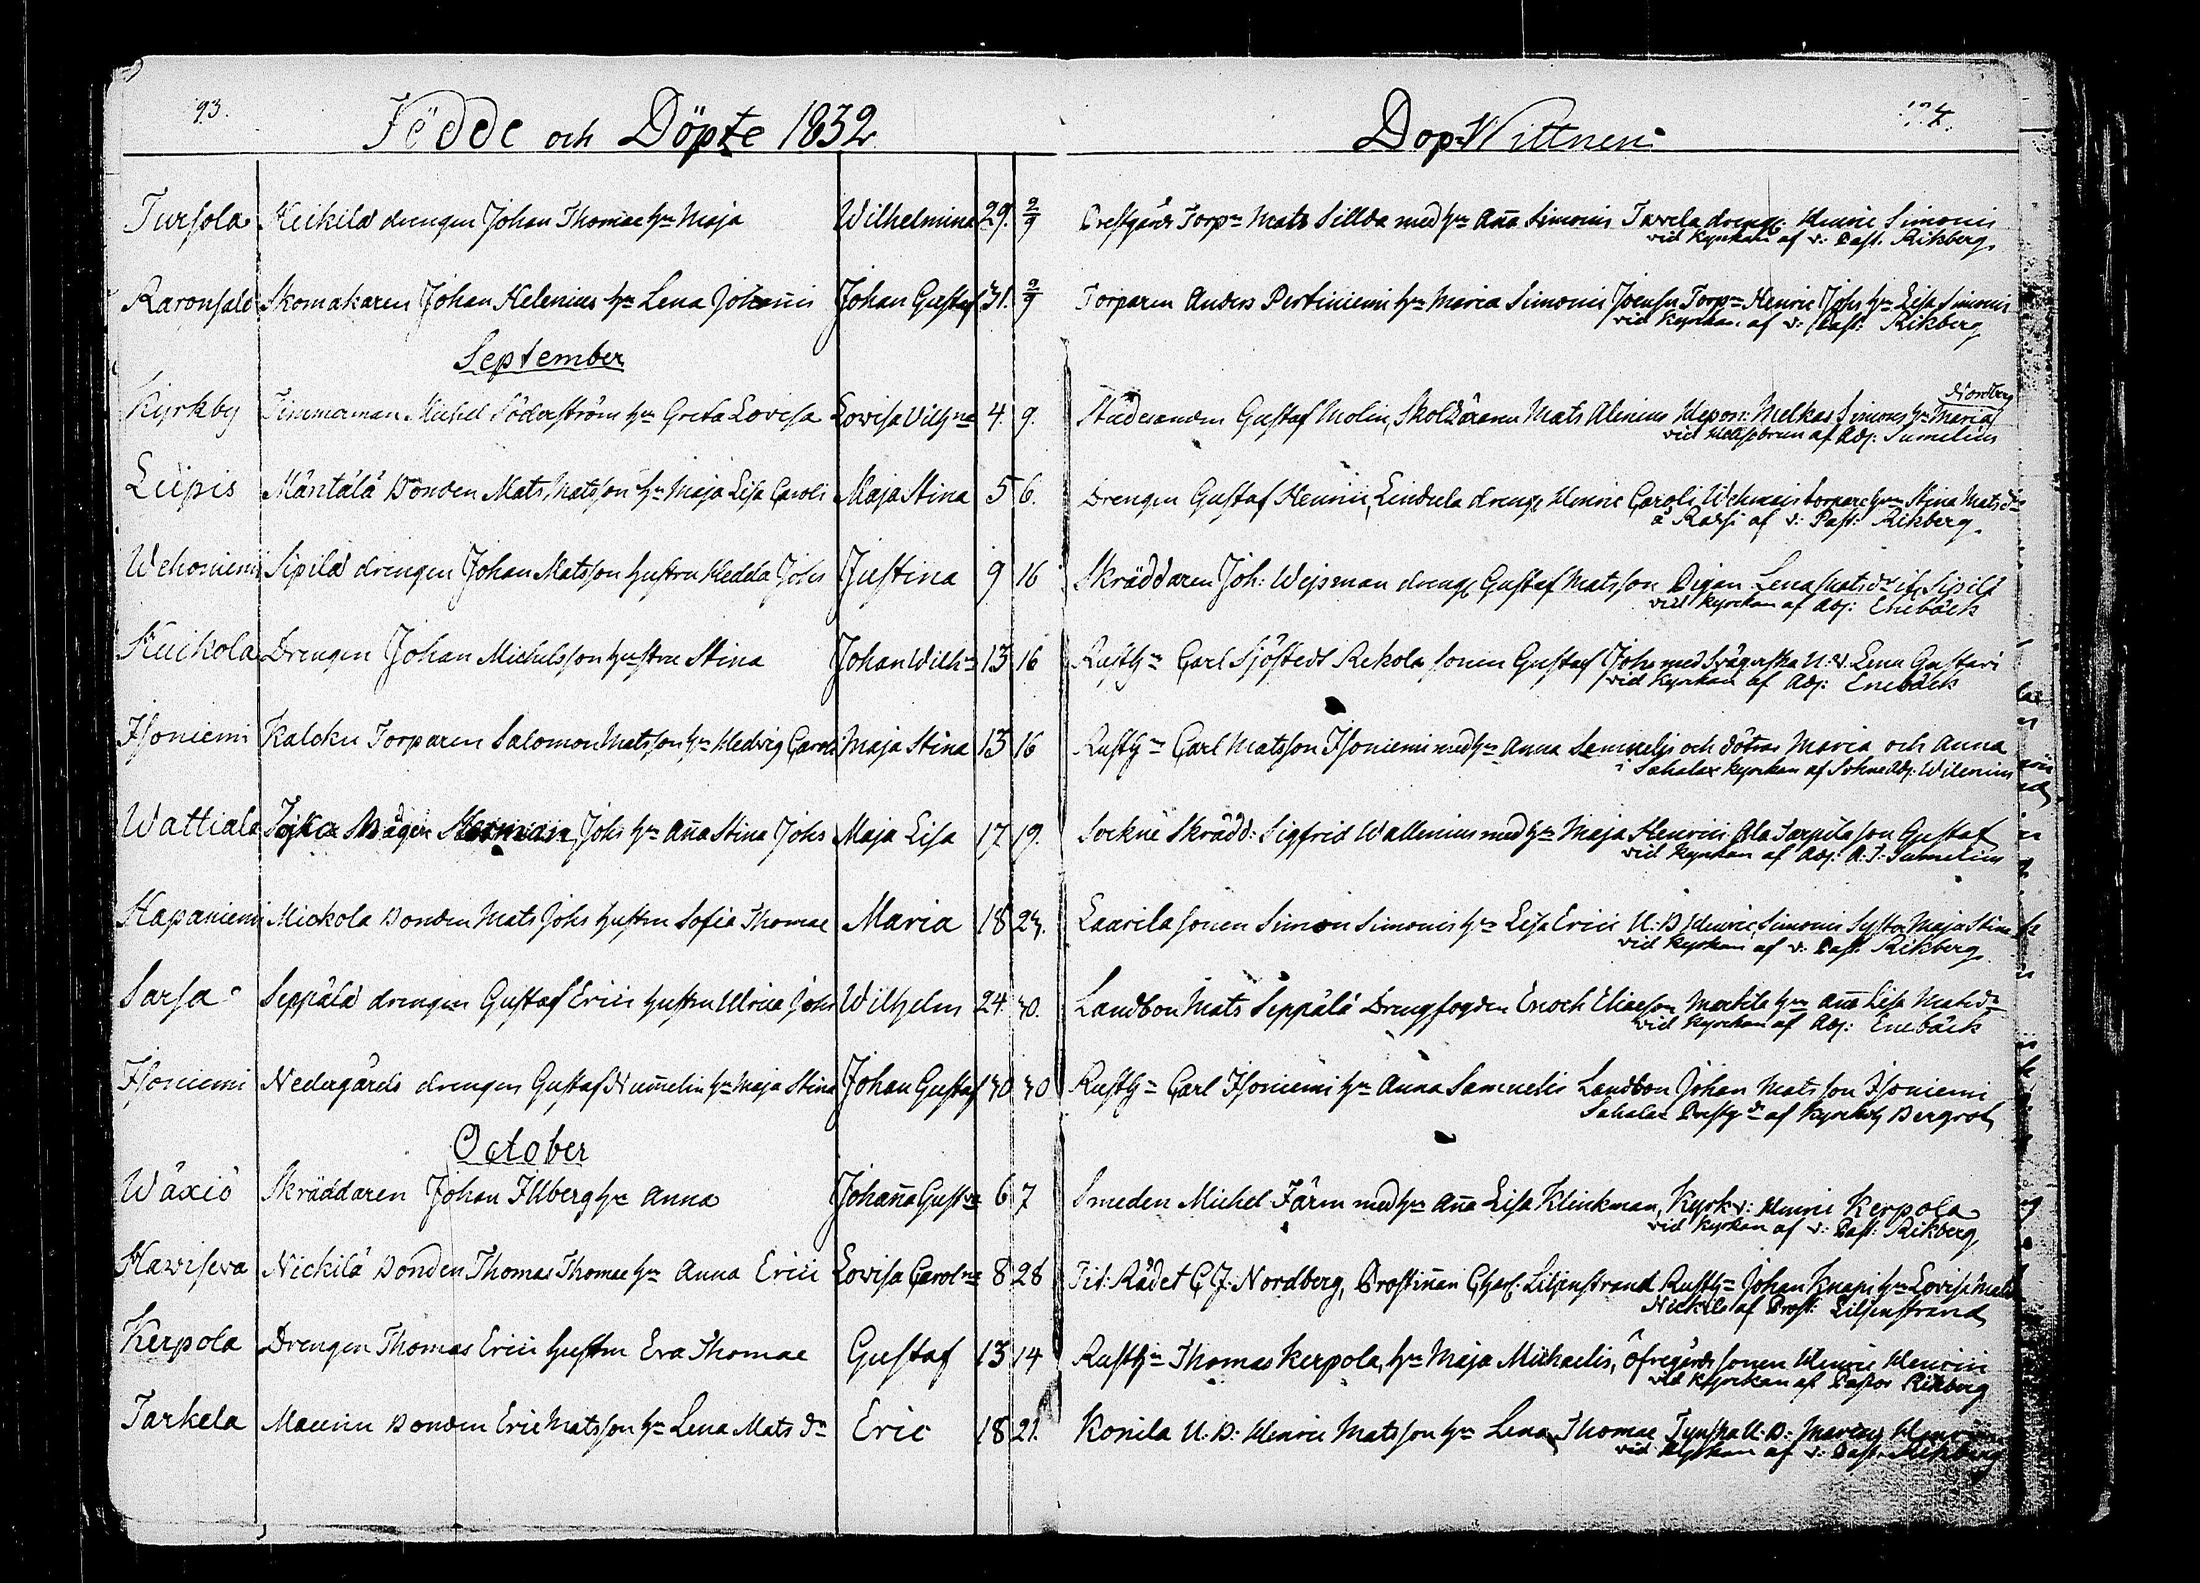 93.
Födde och Döpte 1832
Dop-Wittnen
Tursola Heikilä drengen Johan Thomae hu Maja Wilhelmina 29. 2/9 Prestgårds Torpn Mats Sillda med hu Aña Simonis Tavela dreng Henric Simonis
vid kyrkan af v: Past. Rikberg.
Raronsalo Skomakaren Johan Helenius hu Lena Johañis Johan Gustaf 31. 2/9 Torparen Anders Pertiniemi hu Maria Simonis Torpn Henric Johs hu Lisa Simonis
vid kyrkan af v: Past: Rikberg
September
Kyrkby Timmerman Michel Söderström hu Greta Lovisa Lovisa Vilhna 4. 9. Studeranden Gustaf Molin, Skolläraren Mats Alenius Melkas Simons hu Maria
Nordberg
vid af Adj: Sumelius
Liipis Mäntälä Bonden Mats Matsson hu Maja Lisa Caroli Maja Stina 5 6. Drengen Gustaf Henrici, Lindula dreng Henric Caroli, Wehmais torpare hu Stina Matsdr
a Rarsi af v: Past: Rikberg.
Wehoniemi Sipilä drengen Johan Matsson hustru Hedda Johs Justina 9 16 Skräddaren Joh: Weisman dreng Gustaf Matsson Pigan Lena Matsdr ifr Sipilä
vid kyrkan af Adj: Enebäck
Kuikola Drengen Johan Michelsson hustru Stina Johan Wilhm 13 16 Rusth. Carl Sjöstedt Rekola sonen Gustaf Johs med Svägerska U.v. Lena Gustavi
vid kyrkan af Adj: Enebäck
Isoniemi Kalcku Torparen Salomon Matsson hu Hedvig Caroli Maja Stina 13 16 Rusth. Carl Matsson Isoniemi med hu Anna Samuelis och dötrar Maria och Anna
i Sahalax kyrkan af Sokne Adj: Wilenius
Wattiala Tojka Mågen Herman Johs hu Aña Stina Johs Maja Lisa 17 19. Sockne Skrädd: Sigfrid Wallenius med hu Maja Henrici Ala Tarpila son Gustaf
vid kyrkan af Adj: A: J: Sumelius
Hapaniemi Mickola Bonden Mats Johs hustru Sofia Thomae Maria 18 23. Laarila sonen Simon Simonis hu Lisa Erici U: B Henric Simonis Syster Maja Stina
vid kyrkan af v: Past: Rikberg.
Sarsa Seppälä drengen Gustaf Erici hustru Ulrica Johs Wilhelm 24. 30. Landbon Mats Seppälä Drengfogden Enoch Eliaeson Markila hu Aña Lisa Matsdr
vid kyrkan af Adj: Enebäck
Isoniemi Nedergårds drengen Gustaf Nummelin hu Maja Stina Johan Gustaf 30 30 Rusth. Carl Isoniemi hu Anna Samuelis Landbon Johan Matsson Isoniemi
Sahalax Prestgd af Kyrkoh Bergroth
October
Wäxiö Skräddaren Johan Illberg hu Anna Johaña Gustva 6 7 Smeden Michel Färm med hu Aña Lisa Klinkman, Kyrk v: Henric Kerpola
vid kyrkan af v: Past: Rikberg
Haviseva Nickilä Bonden Thomas Thomae hu Anna Erici Lovisa Carolna 8 28 Tit: Rådet C J. Nordberg, Prostiñan Charl. Liljenstrand Rusth. Johan Knapi hu Lovisa Mats
Nickilä af Prost: Liljenstrand
Kerpola Drengen Thomas Erici hustru Eva Thomae Gustaf 13 14 Rusth. Thomas Kerpola, hu Maja Michaelis, Öfregårds sonen Henric Henrici
vid kyrkan af Pastor Rikberg
Tarkela Bonden Eric Matsson hu Lena Mats dr Eric 18 21. Konila U. B: Henric Matsson hu Lena Thomae U: B: Marcus Henrici
vid kyrkan af v: Past: Rikberg